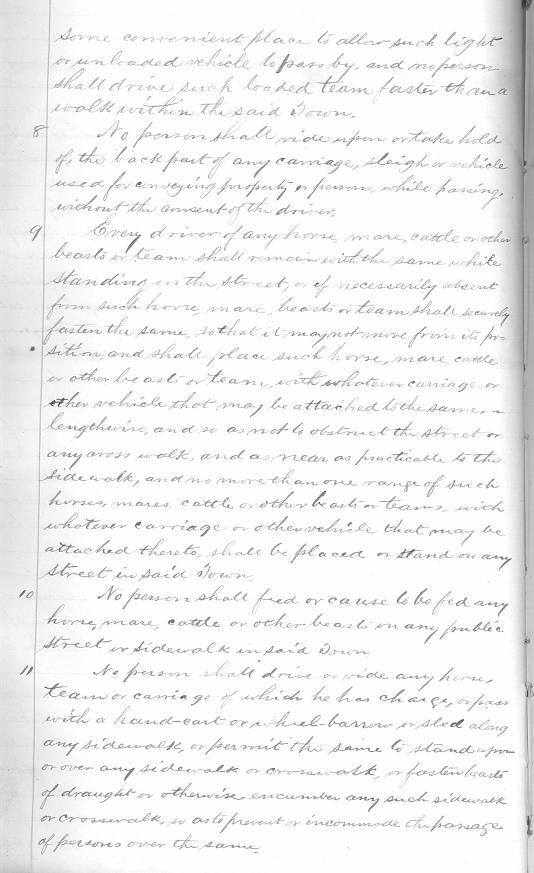 some convenient place to allow such light
or unloaded vehicle to pass by, and no person
shall drive such loaded team faster than a
walk within the said Town.
8 No person shall ride upon or take hold
of, the back part of any carriage, sleigh or vehicle
used for conveying property or persons, while passing,
without the consent of the driver.
9 Every driver of any horse, mare, cattle or other
beasts or team shall remain with the same while
standing on the street, or if necessarily absent
from such horse, mare, beasts or team shall securely
fasten the same, so that it may not move from its po-
sition, and shall place such horse, mare, cattle
or other beasts or team, with whatever carriage or
other vehicle that may be attached to the same,
lengthwise, and so as not to obstruct the street or
any cross walk, and as near as practicable to the
sidewalk, and no more than one range of such
horses, mares, cattle or other beasts or teams, with
whatever carriage or other vehicle that may be
attached thereto, shall be placed or stand on any
street in said Town.
10 No person shall feed or cause to be fed any
horse, mare, cattle or other beasts on any public
street or sidewalk in said Town
11 No person shall drive or ride any horse,
team or carriage of which he has charge, or pass
with a hand-cart or wheel-barrow or sled along
any sidewalk, or permit the same to stand upon
or over any sidewalk or crosswalk, or fasten beasts
of draught or otherwise encumber any such sidewalk
or crosswalk, so as to prevent or incommode the passage
of persons over the same.